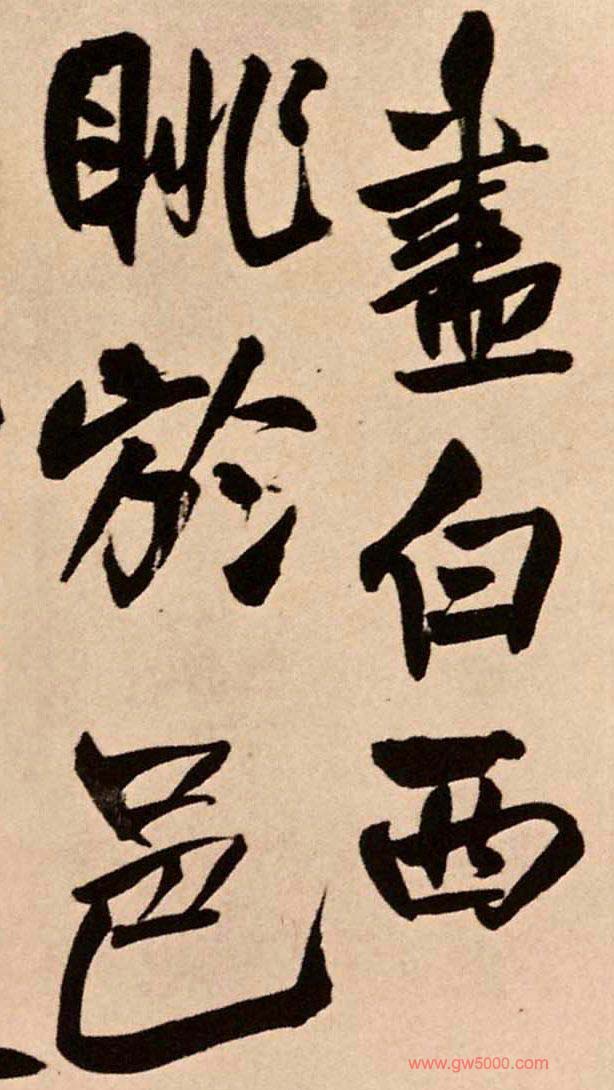 盡白西
眺於邑
www.gw5000.com